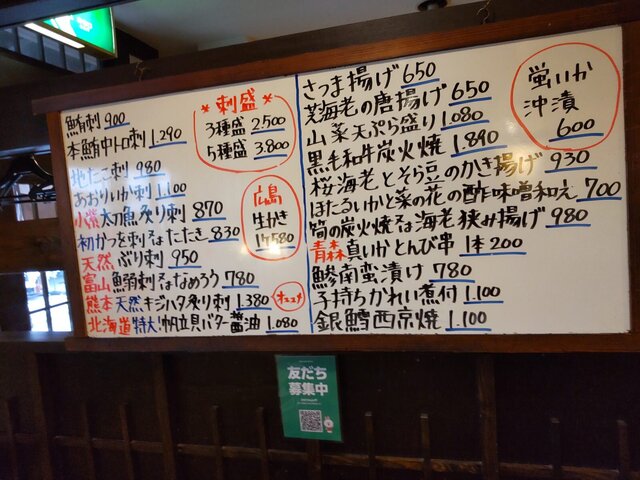 鮪刺 900
本鮪中トロ刺 1.290
地たこ刺 980
あおりいか刺 1.100
小柴 太刀魚炙り刺 870
初かつを刺又はたたき 830
天然 ぶり刺 950
富山 鰤刺又はなめろう 780
熊本 天然キジハタ炙り刺 1.380 オススメ
北海道 特大!帆立貝バター醤油 1.080
* 刺盛 *
3種盛 2.500
5種盛 3.800
広島
生かき
1ヶ580
さつま揚げ 650
芝海老の唐揚げ 650
山菜天ぷら盛り 1.080
黒毛和牛炭火焼 1.890
桜海老とそら豆のかき揚げ 930
ほたるいかと菜の花の酢味噌和え 700
筍の炭火焼又は海老挟み揚げ 980
青森 真いかとんび串 1本200
鯵南蛮漬け 780
子持ちかれい煮付 1.100
銀鱈西京焼 1.100
蛍いか
沖漬
600
友だち
募集中